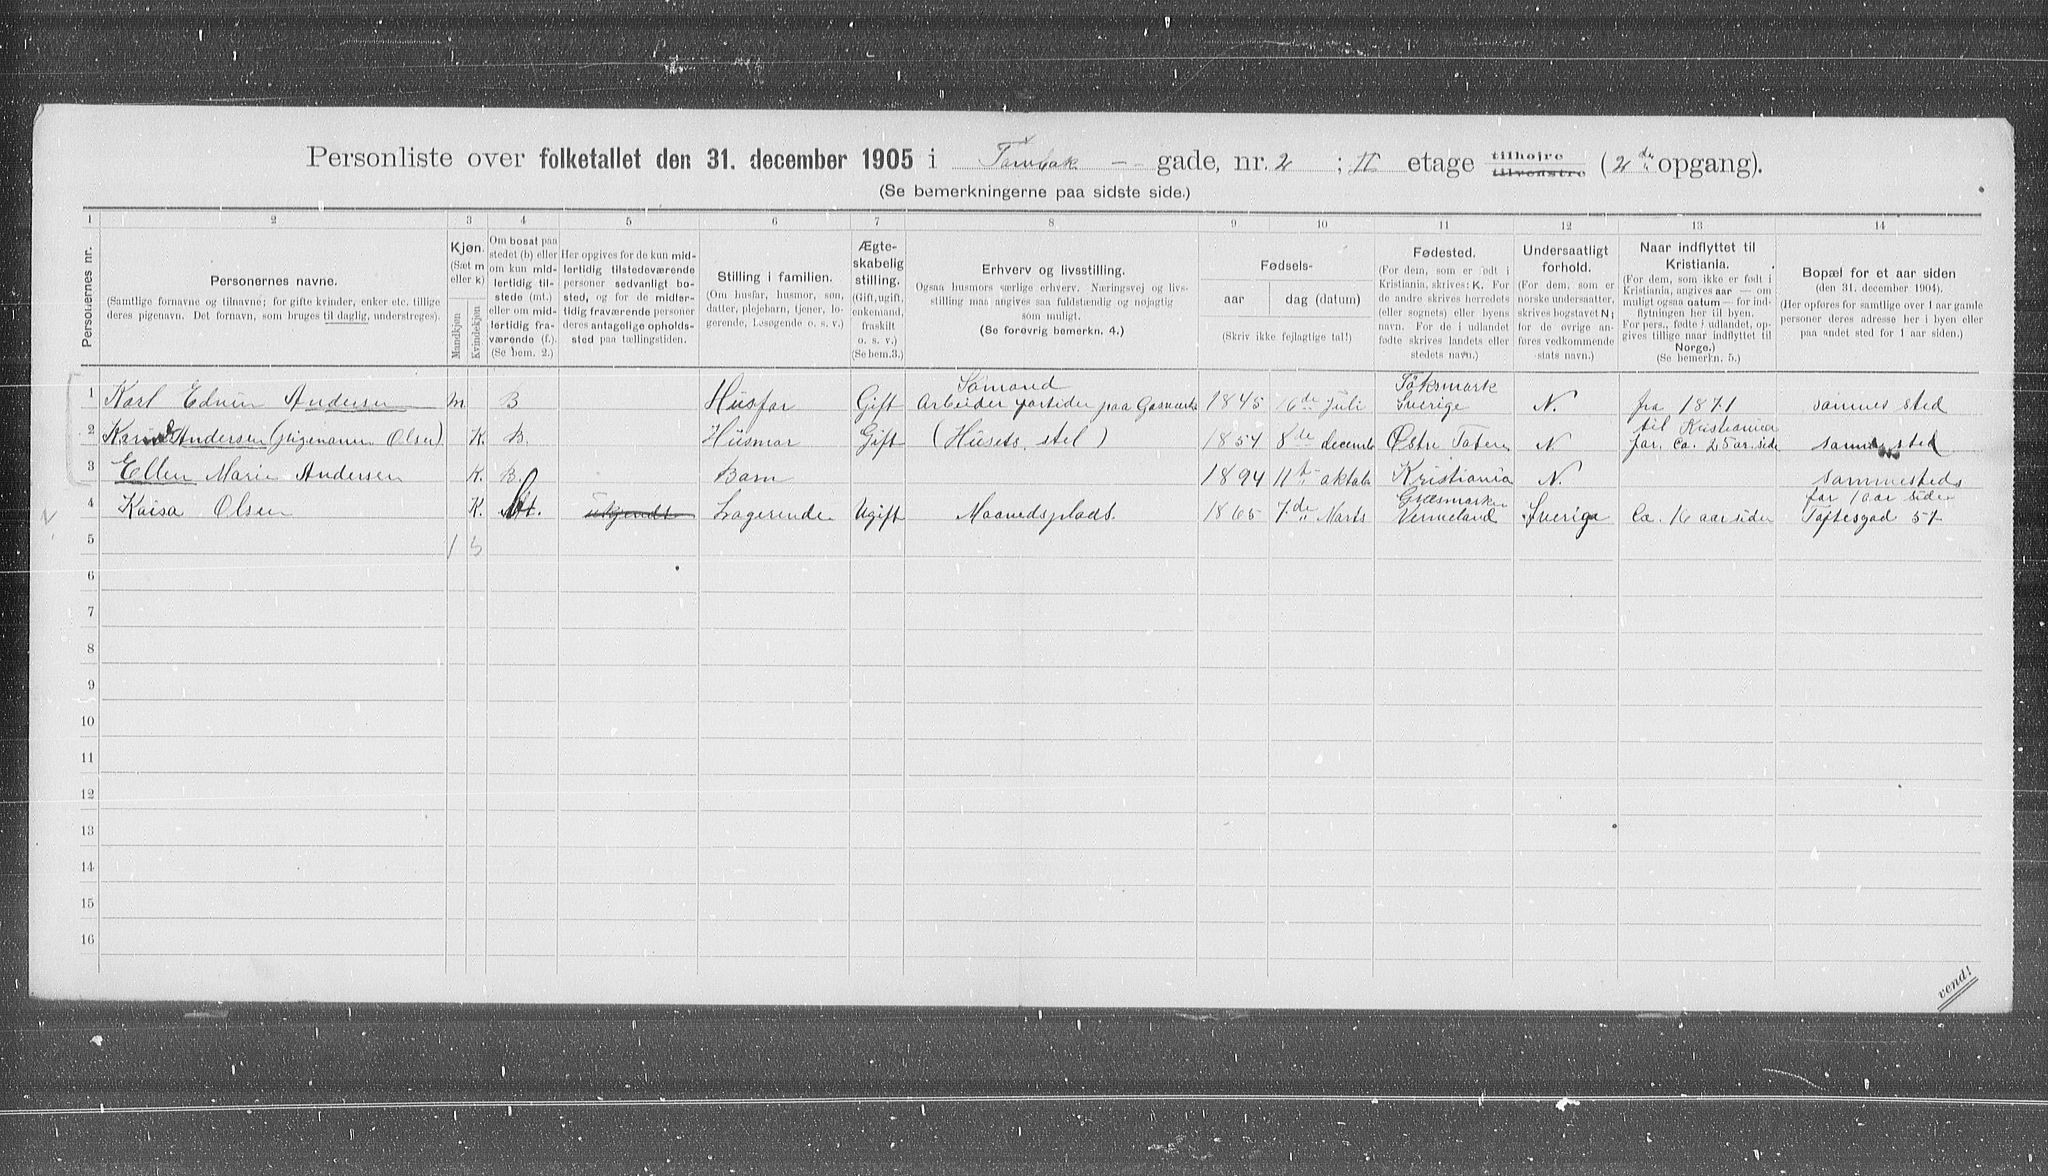 Personliste over folketallet den 31. december 1905 i Tømbak -- gade, nr. 2 ; II etage tilhøjre tilvenstre (2de opgang).
(Se bemerkningerne paa sidste side.)
1 2 3 4 5 6 7 8 9 10 11 12 13 14
Personernes nr.
Personernes navne.
(Samtlige fornavne og tilnavne; for gifte kvinder, enker etc. tillige
deres pigenavn. Det fornavn, som bruges til daglig, understreges).
Kjøn.
(Sæt m
eller k)
Mandkjøn
Kvindekjøn
Om bosat paa
stedet (b) eller
om kun mid-
lertidig til-
stede (mt.)
eller om mid-
lertidig fra-
værende (f.).
(Se bem. 2.)
Her opgives for de kun mid-
lertidig tilstedeværende
personer sedvanlig bo-
sted, og for de midler-
tidig fraværende personer
deres antagelige opholds-
sted paa tællingstiden.
Stilling i familien.
(Om husfar, husmor, søn,
datter, plejebarn, tjener, lo-
gerende, Losøgende o. s. v.)
Ægte-
skabelig
stilling.
(Gift, ugift,
enkemand,
fraskilt
o. s. v.)
(Se bem.3.)
Erhverv og livsstilling.
Ogsaa husmors særlige erhverv. Næringsvej og livs-
stilling maa angives saa fuldstændig og nøjagtig
som muligt.
(Se forøvrig bemerkn. 4.)
Fødsels-
aar
dag (datum)
(Skriv ikke fejlagtige tal!)
Fødested.
(For dem, som er født i
Kristiania, skrives: K. For
de andre skrives herredets
(eller sognets) eller byens
navn. For de i udlandet
fødte skrives landets eller
stedets navn.)
Undersaatligt
forhold.
(For dem, som er
norske undersaatter,
skrives bogstavet N;
for de øvrige an-
føres vedkommende
stats navn.)
Naar indflyttet til
Kristiania.
(For dem, som ikke er født i
Kristiania, angives aar — om
muligt ogsaa datum — for ind-
flytningen her til byen.
For pers., fødte i udlandet, op-
gives tillige naar indflyttet til
Norge.)
(Se bemerkn. 5.)
Bopæl for et aar siden
(den 31. december 1904).
(Her opføres for samtlige over 1 aar gamle
personer deres adresse her i byen eller
paa andet sted for 1 aar siden.)
1 Karl Edvin Andersen m. B Husfar Gift Sømand Arbeider paa Gasværk 1845 6de Juli Töksmark Sverige N. fra 1871 sammes sted
2 Andersen (pigenavn Olsen) K. B. Husmor Gift (Husets stel) 1854 8de decemb Østre N til Kristiania for ca. 25 ar. side sammested
3 Ellen Marie Andersen K. B. Barn 1894 11te oktober Kristiania N. sammesteds
4 Kaisa Olsen K. Mt. Logerende Ugift Maanedsplads. 1865 7de Marts Græsmark Vermeland Sverige Ca. 16 aar siden for 1 aar siden Toftesgad 57
5 1 3
6
7
8
9
10
11
12
13
14
15
16
vend!